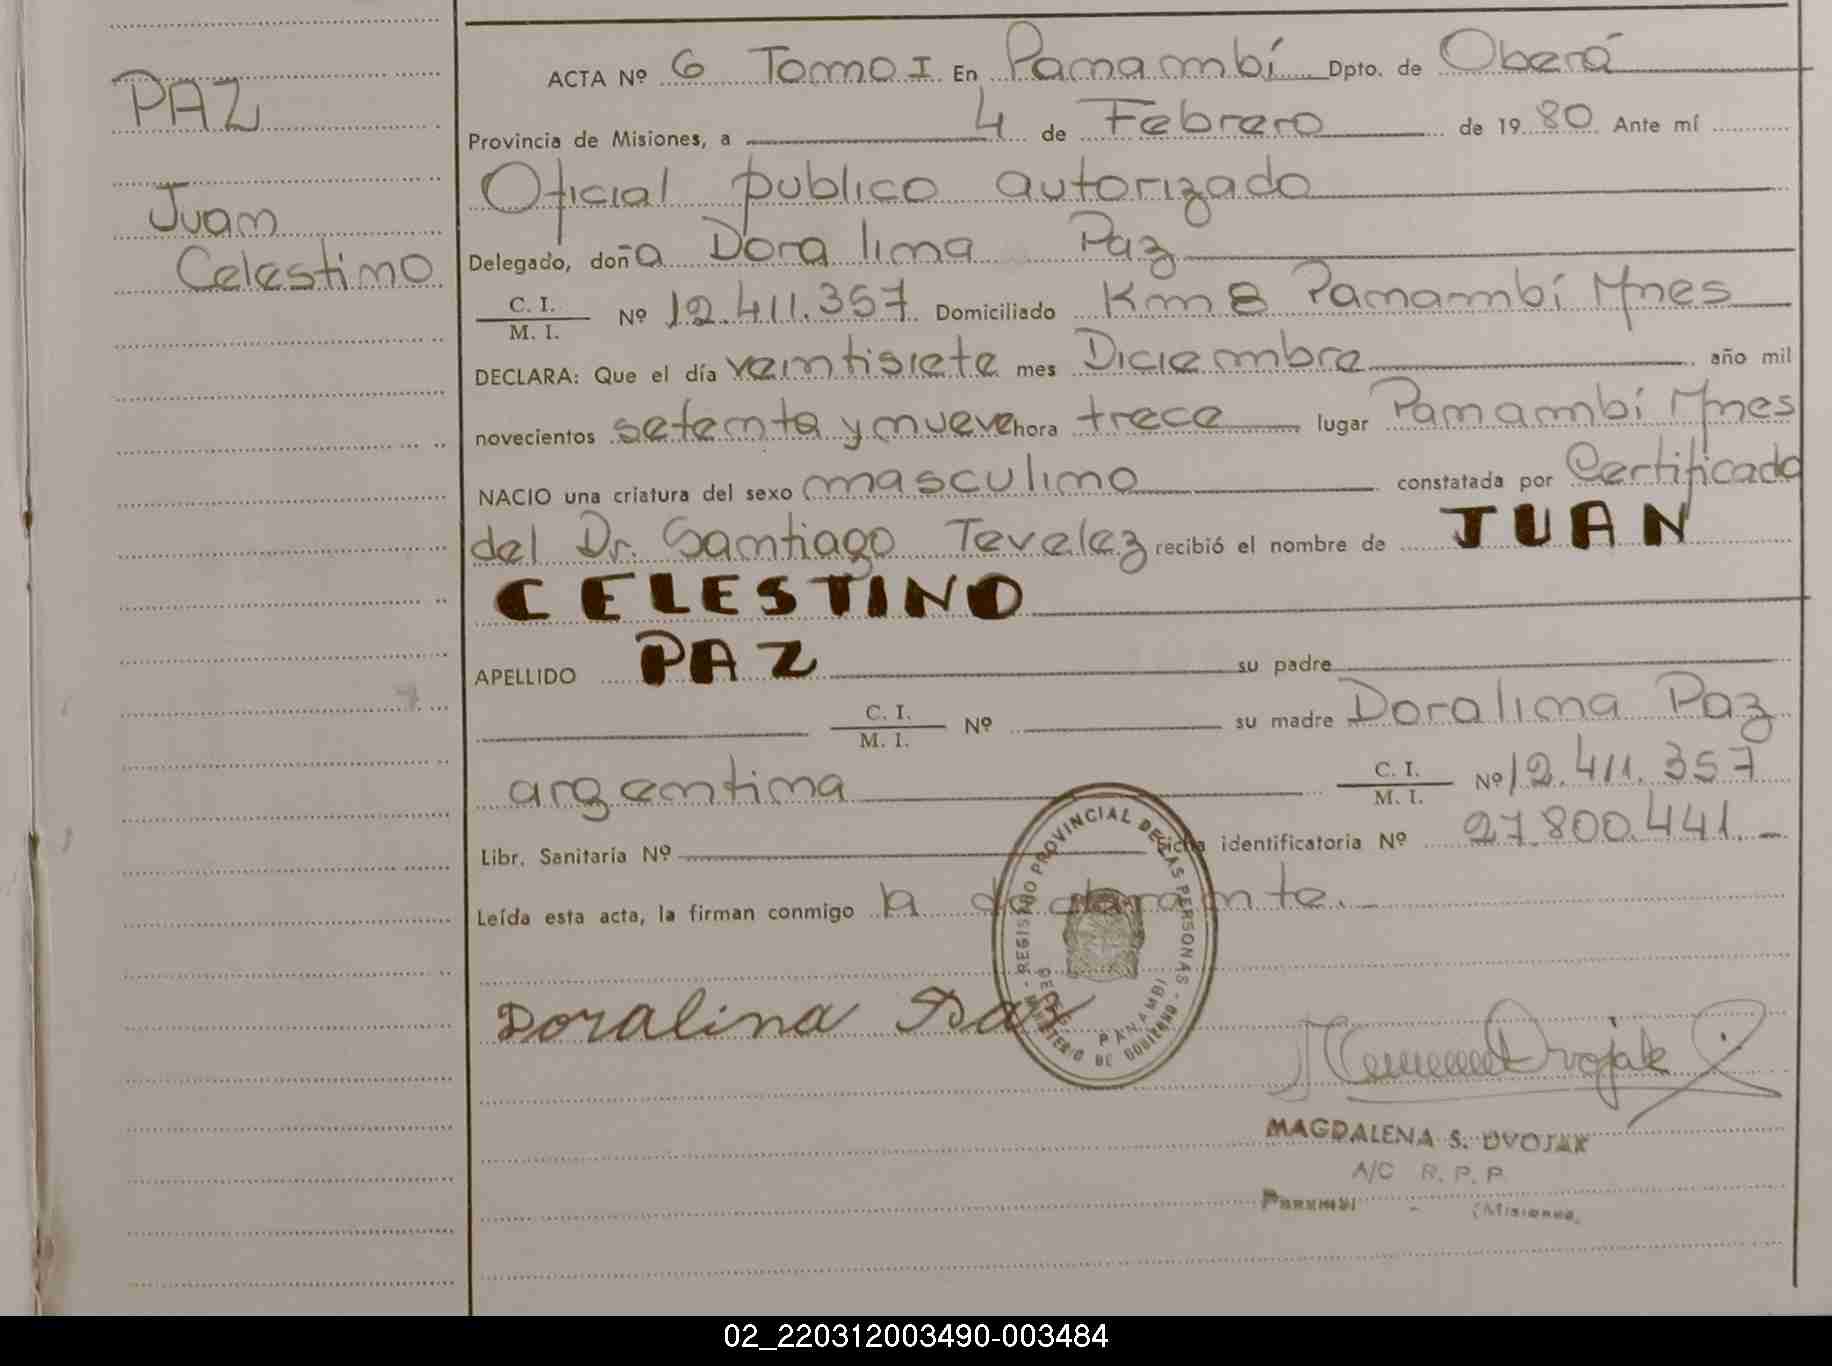 PAZ
Juan
Celestino
ACTA Nº 6 Tomo I En Panambí Dpto. de Oberá
Provincia de Misiones, a 4 de Febrero de 1980 Ante mí
Oficial publico autorizado
Delegado, doña Dora lina Paz
C. I.
M. I. Nº 12.411.357 Domiciliado Km 8 Panambí Mnes
DECLARA: Que el día veintisiete mes Diciembre año mil
novecientos setenta y nueve hora trece lugar Panambí Mnes
NACIO una criatura del sexo masculino constatada por Certificado
del Dr. Santiago Tevelez recibió el nombre de JUAN
CELESTINO
APELLIDO PAZ su padre
C. I.
M. I. Nº su madre Doralina Paz
argentina C. I.
M. I. Nº 12.411.357
Libr. Sanitaria Nº Ficha identificatoria Nº 27.800.441.-
Leída esta acta, la firman conmigo la declarante.-
REGISTRO PROVINCIAL DE LAS PERSONAS
PANAMBI
MINISTERIO DE GOBIERNO
Doralina Paz
Dvojak
MAGDALENA S. DVOJAK
A/C R. P. P.
PANAMBI - (Misiones)
02_220312003490-003484